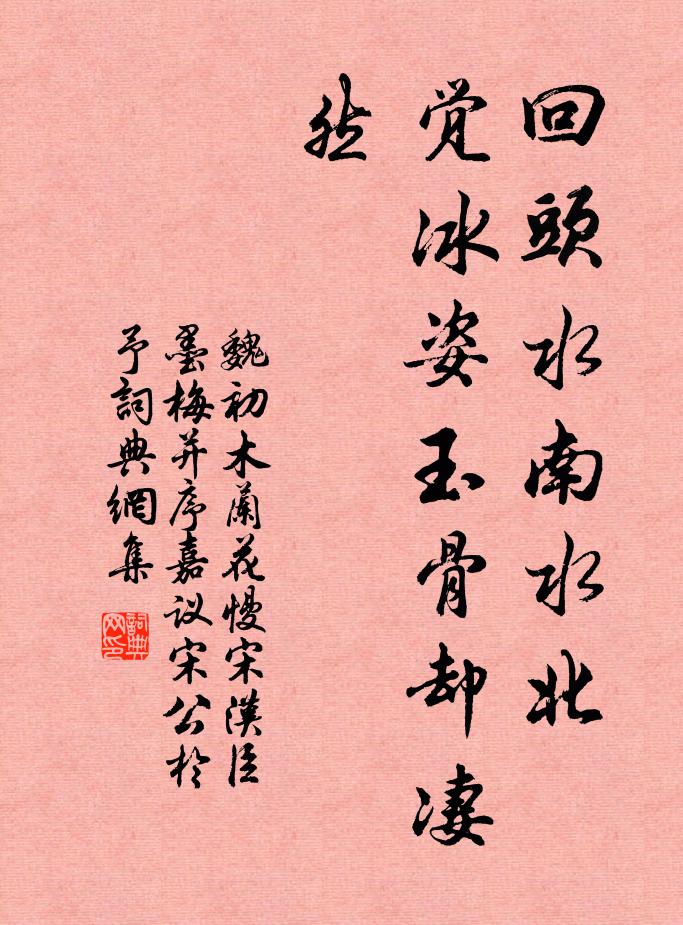 回頭水南水北
覚冰姿玉骨却凄
然
魏初木蘭花慢宋漢臣
墨梅并序嘉议宋公於
予詞典網集
詞典
网印